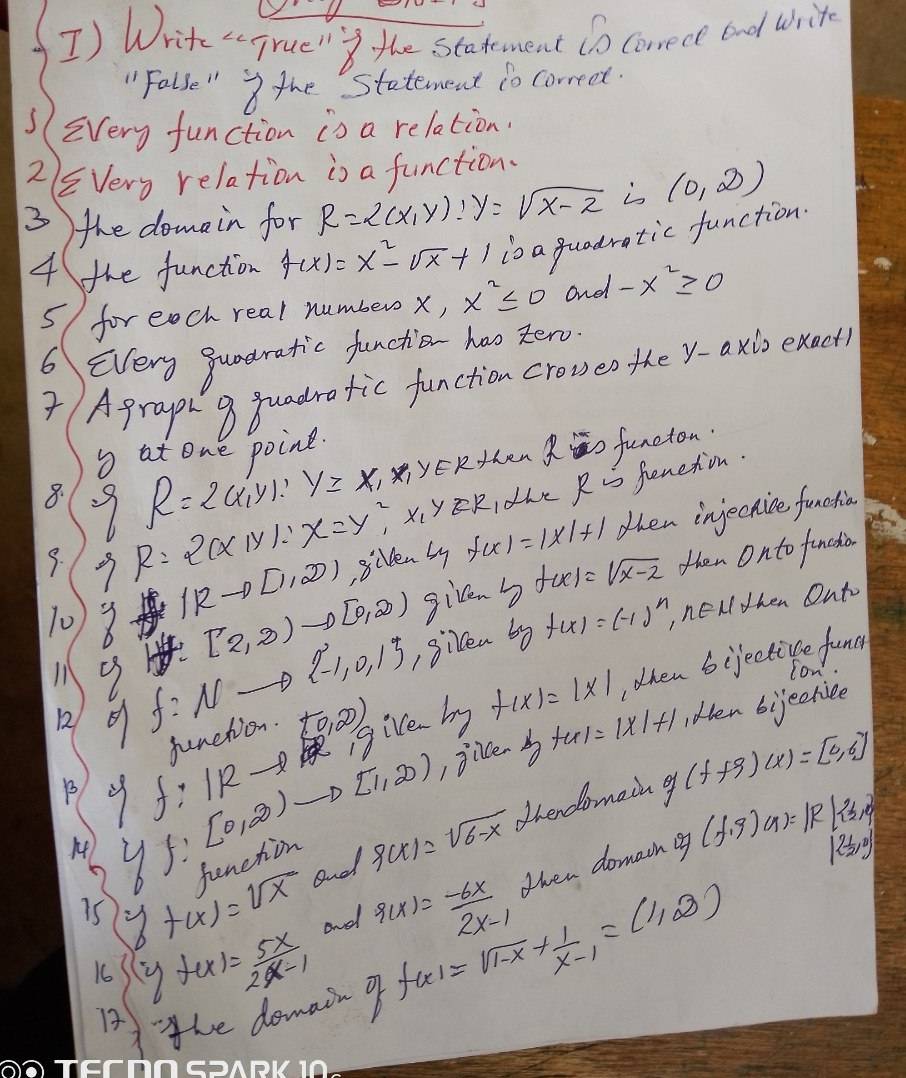 I) Write "True" if the statement is correct and write
"False" if the statement is correct.
1) Every function is a relation.
2) Every relation is a function.
3 The domain for R={(x,y): y=√x-2 is (0,∞)
4 The function f(x)=x²-√x+1 is a quadratic function.
5 for each real numbers x, x²≤0 and -x²≥0
6 Every quadratic function has zero.
7 A graph of quadratic function crosses the y-axis exactl
y at one point.
8. if R={(x,y): y≥x, x,y∈R then R is functon.
9. if R={(x,y): x=y², x,y∈R, the R is function.
10) if IR→[1,∞), given by f(x)=|x|+1 then injective functio
11 if : [2,∞)→[0,∞) given by f(x)=√x-2 then Onto functio
12 if f: N→{-1,0,1}, given by f(x)=(-1)ⁿ, n∈N then Onto
function.
13 if f: IR→[0,∞), given by f(x)=|x|, then bijective funct
ion.
14 if f: [0,∞)→[1,∞), given by f(x)=|x|+1, then bijective
function
15 if f(x)=√x and g(x)=√6-x then domain of (f+g)(x)=[0,6]
16 if f(x)=5x/2x-1 and g(x)=-6x/2x-1 then domain of (f.g)(x)=IR\{½,0}
\{½,0}
17 The domain of f(x)=√1-x+1/x-1=(1,∞)
TECNO SPARK 10